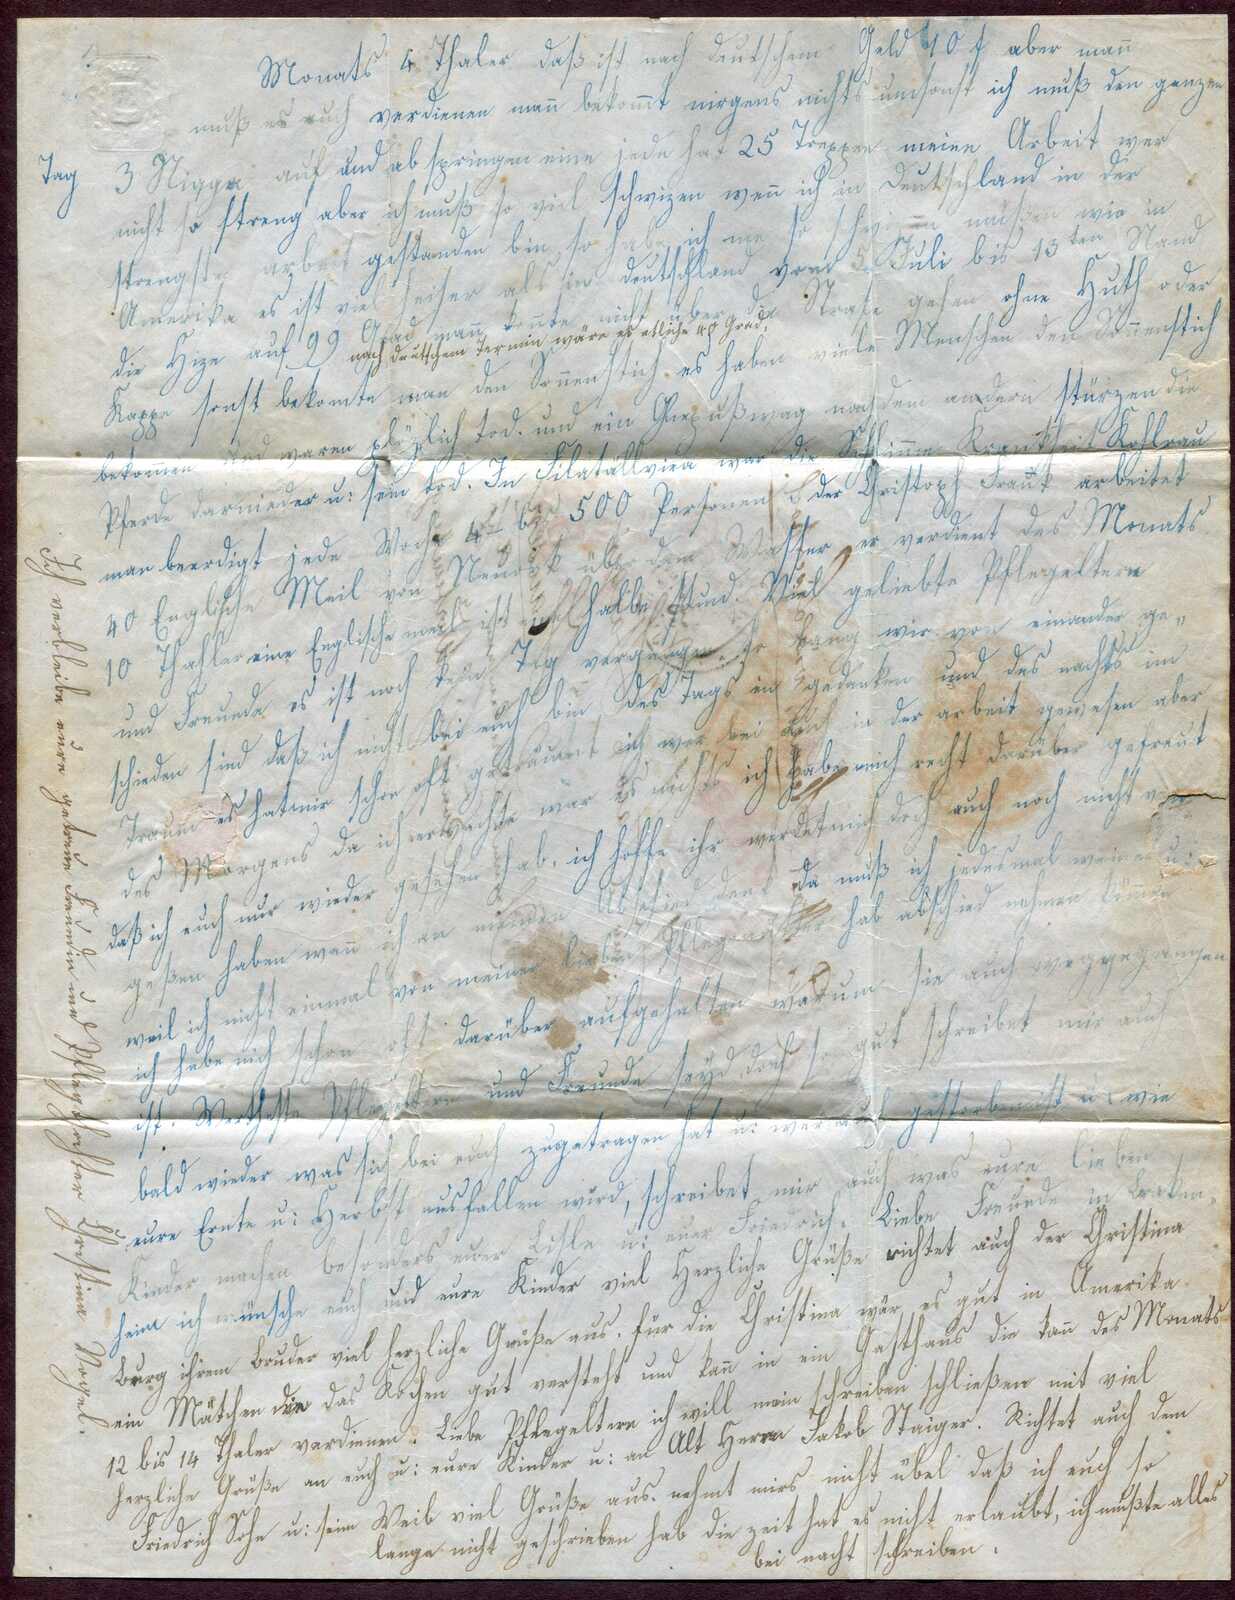 Monats 4 Thaler daß ist nach deutschem Geld 10 f aber mann
muß es auch verdienen mann bekommt nirgens nichts umsonst ich muß den ganzen
Tag 3 auf und ab springen eine jede hat 25 Treppen meine Arbeit wer
nicht so streng aber ich muß so viel schwizen wenn ich in Deutschland in der
strengsten arbeit gestanden bin so habe ich nie so schwizen müßen wie in
Amerika es ist viel heiser als in deutschland vom 5. Juli bis 13ten Stand
die Hize auf 99 Grad mann konnte nicht über die Straße gehen ohne Huth oder
nach deutschem Termin wäre es etliche 40 Grad.
Kappe sonst bekomte man den Sonnenstich es haben viele Menschen den Sonnenstich
bekomen und waren plözlich tod. und ein nach dem andern stürzen die
Pferde darnieder u: sein tod. In Filatällviea war die Schlimme Krankheit
man beerdigt jede Woche 4 bis 500 Personen der Christoph Frauk arbeitet
40 Englische Meil von Neuork über dem Wasser er verdient des Monats
10 Thahler eine Englische meil ist eine halbe stund. Viel geliebte Pflegeltern
und Freunde es ist noch kein Tag vergangen so lang wir von einander ge-
schieden sind daß ich nicht bei euch bin des Tags in gedanken und des nachts im
Traum es hat mir schon oft geträumt ich war bei euch in der arbeit gewesen aber
des Morgens da ich erwachte war es nichts ich habe mich recht darüber gefreut
daß ich euch nur wieder gesehen hab. ich hoffe ihr werdet mich doch auch noch nicht ver
geßen haben wann ich an meinen Abschied denk da muß ich jedesmal weinen u:
weil ich nicht einmal von meiner lieben hab abschied nehmen können
ich habe mich schon oft darüber aufgehalten warum sie auch weggegangen
ist. Wertheste Pflegeltern und Freunde seyd doch so gut schreibet mir auch
bald wieder was sich bei euch zugetragen hat u: wer auch gestorben ist u: wie
eure Ernte u: Herbst ausfallen wird, schreibet mir auch was eure lieben
Kinder machen besonders euer Lisle u: euer Friedrich. Liebe Freunde in Braken-
heim ich wünsche euch und eure Kinder viel Herzliche Grüße richtet auch der Christina
Burg ihrem Bruder viel herzliche Grüße aus. für die Christina wär es gut in Amerika
ein Mätchen die das Kochen gut versteht und kann in ein Gasthaus die kann des Monats
12 bis 14 Thaler verdienen. Liebe Pflegeltern ich will mein schreiben schließen mit viel
herzliche Grüße an euch u: eure Kinder u: an Alt Herrn Jakob Staiger. Richtet auch dem
Friedrich Sohn u: seim Weib viel Grüße aus. nehmt mirs nicht übel daß ich euch so
lange nicht geschrieben hab die zeit hat es nicht erlaubt, ich mußte alles
bei nacht schreiben.
Ich verbleibe eure getreue Freundin und Pflegtochter Christina Vogel.